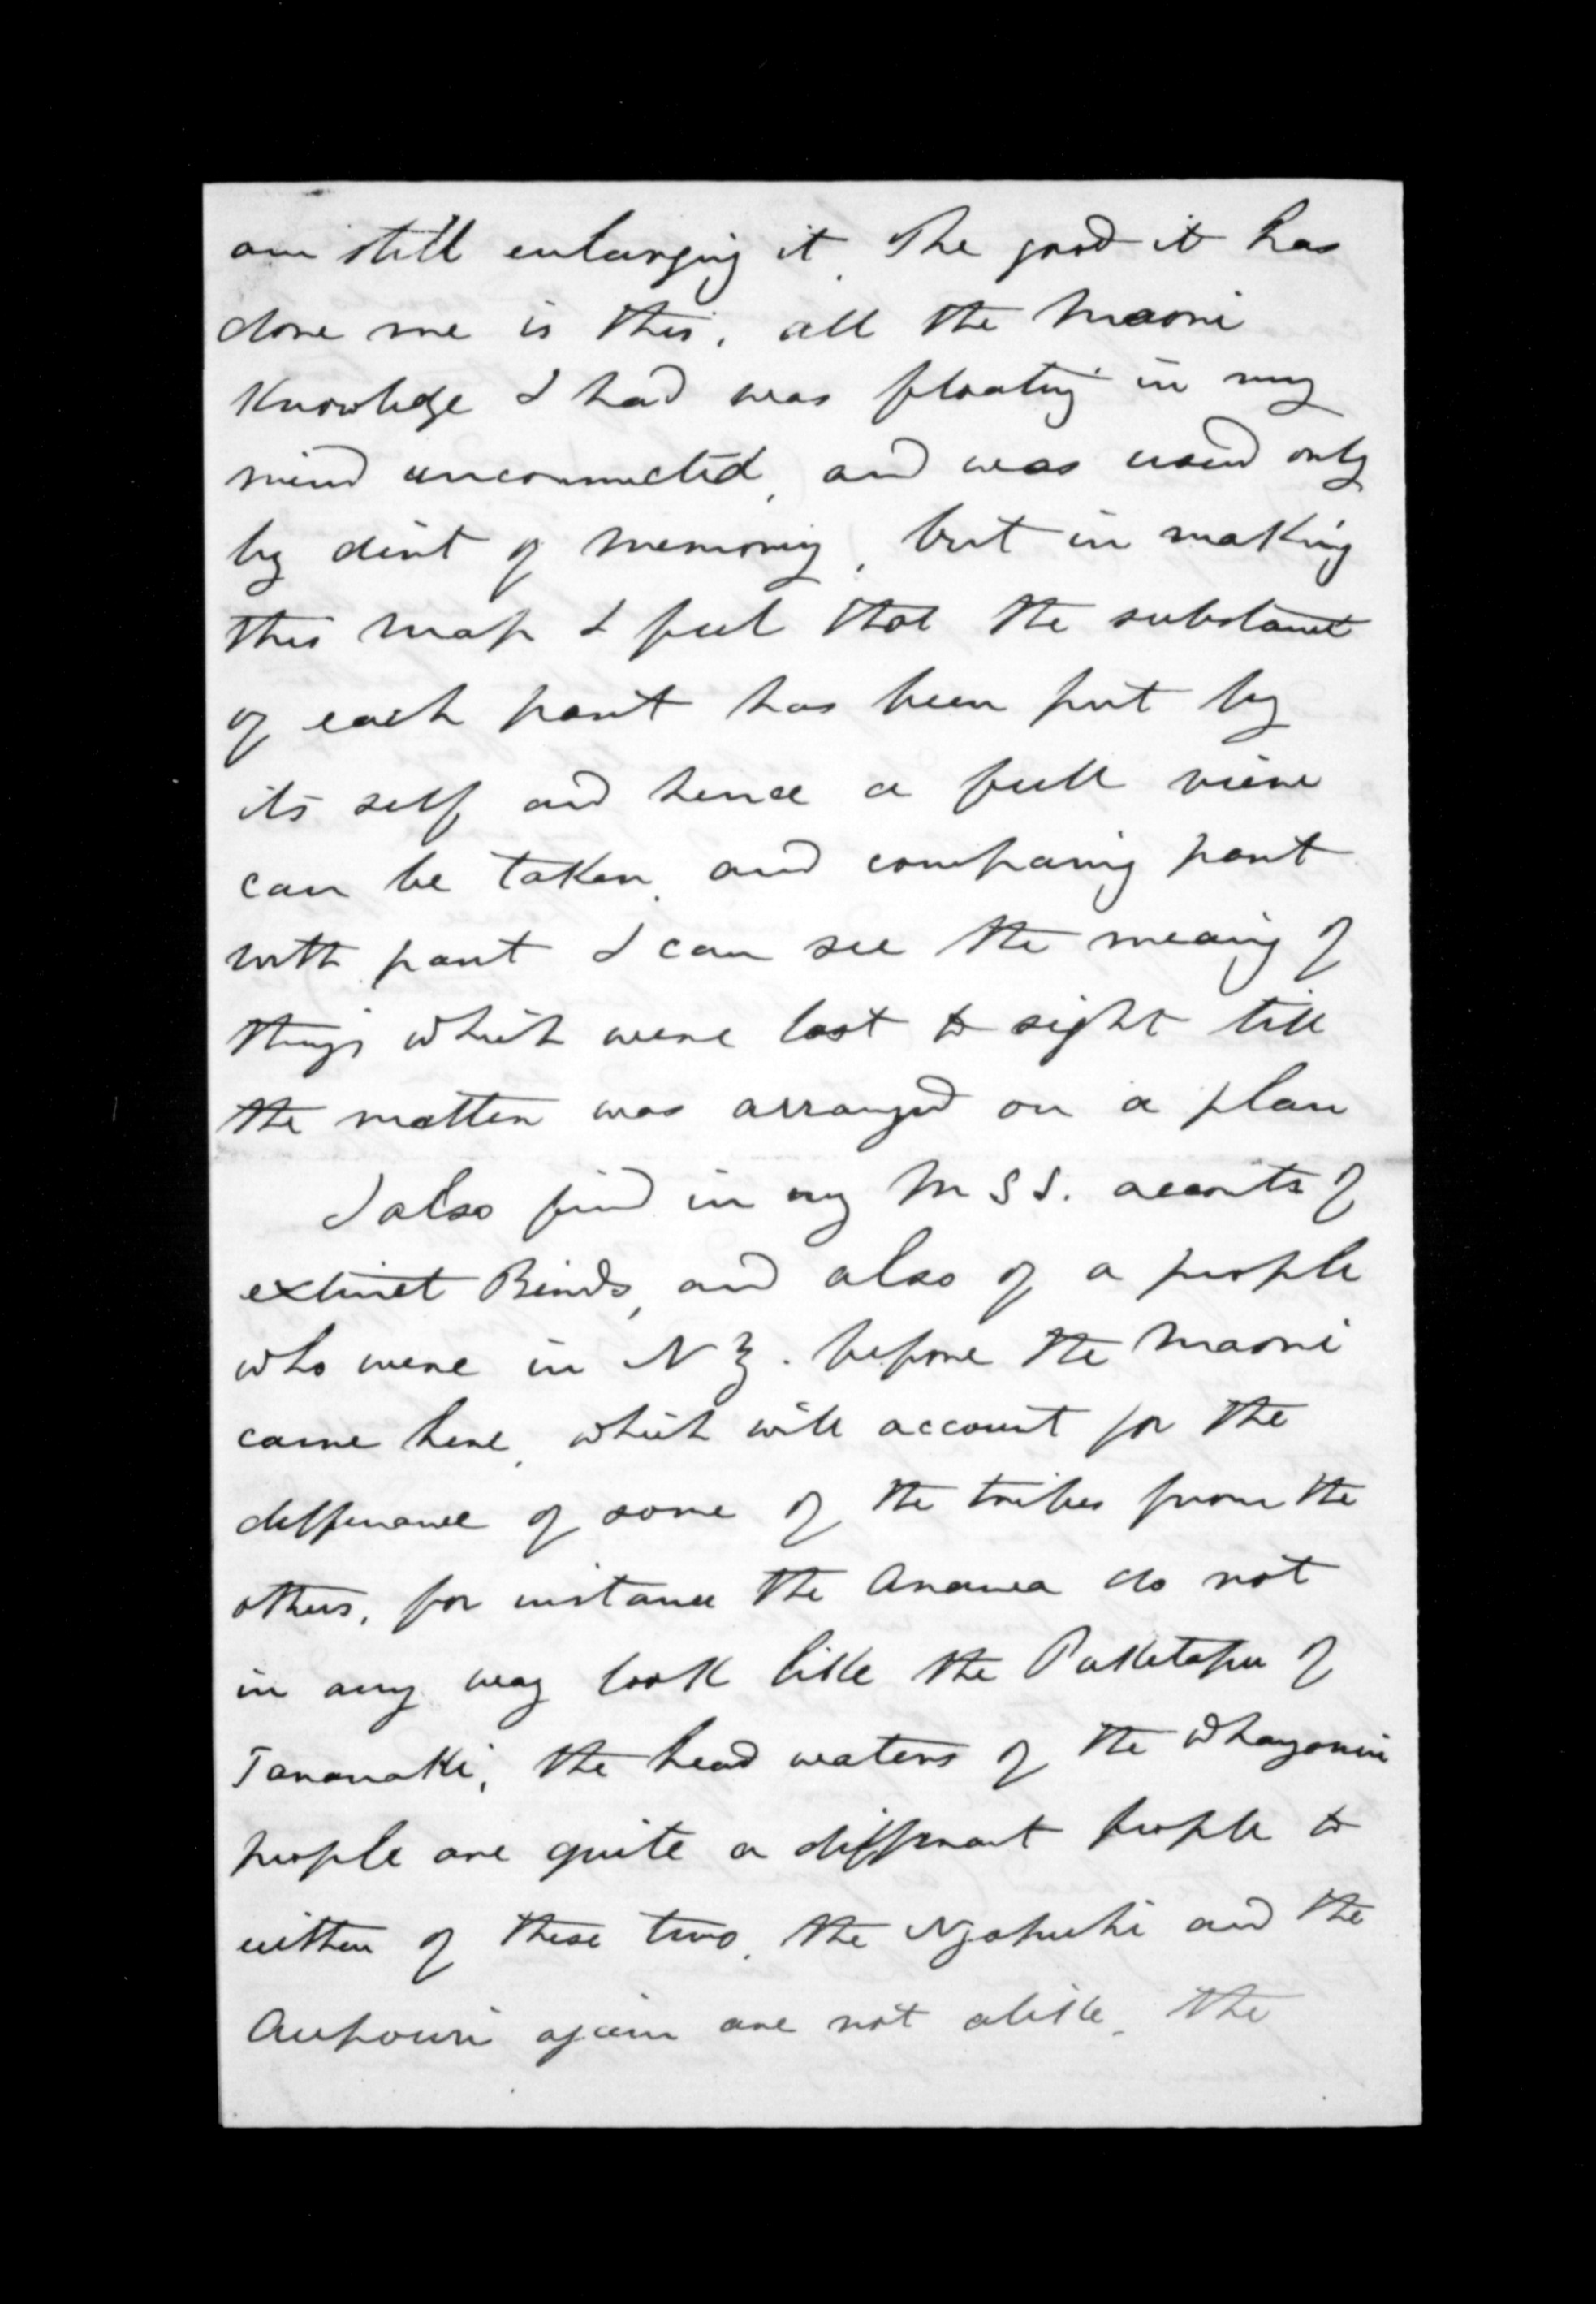 am still enlarging it. The good it has
done me is this, all the Maori
Knowledge I had was floating in my
mind unconnected, and was used only
by dint of memory, but in making
this map I feel that the substance
of each part has been put by
its self and hence a full view
can be taken, and comparing part
with part I can see the meaing of
things which were lost to sight till
the matter was arranged on a plan
I also find in my M S S. accounts of
extinct Birds, and also of a people
who were in N Z. before the Maori
came here, which will account for the
differance of some of the tribes from the
others, for instance the Arawa do not
in any way look like the Puketapu of
Taranaki, the head waters of the Whanganui
people are quite a differant people to
either of these two, the Ngapuhi and the
Aupouri again are not alike. The